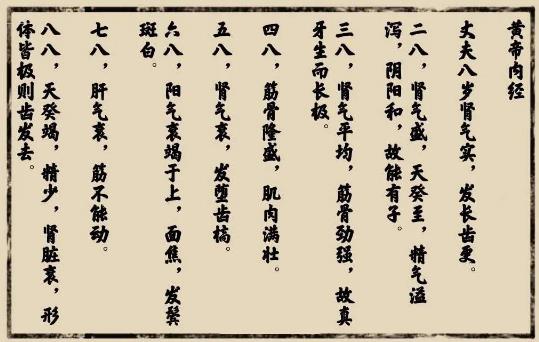 黄帝内经
丈夫八岁肾气实，发长齿更。
二八，肾气盛，天癸至，精气溢
泻，阴阳和，故能有子。
三八，肾气平均，筋骨劲强，故真
牙生而长极。
四八，筋骨隆盛，肌肉满壮。
五八，肾气衰，发堕齿槁。
六八，阳气衰竭于上，面焦，发鬓
斑白。
七八，肝气衰，筋不能动。
八八，天癸竭，精少，肾脏衰，形
体皆极则齿发去。